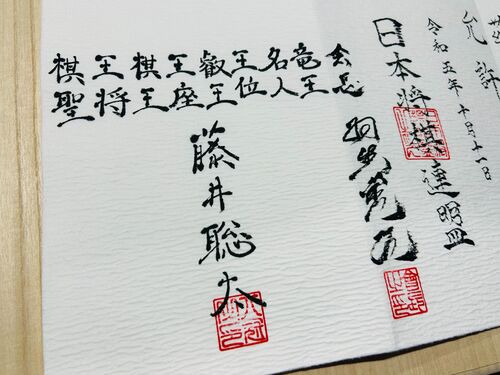 允許
令和五年十月十一日
日本将棋連盟
会長 羽生善治
竜王
名人
王位
叡王
王座
棋王
王将
棋聖
藤井聡太